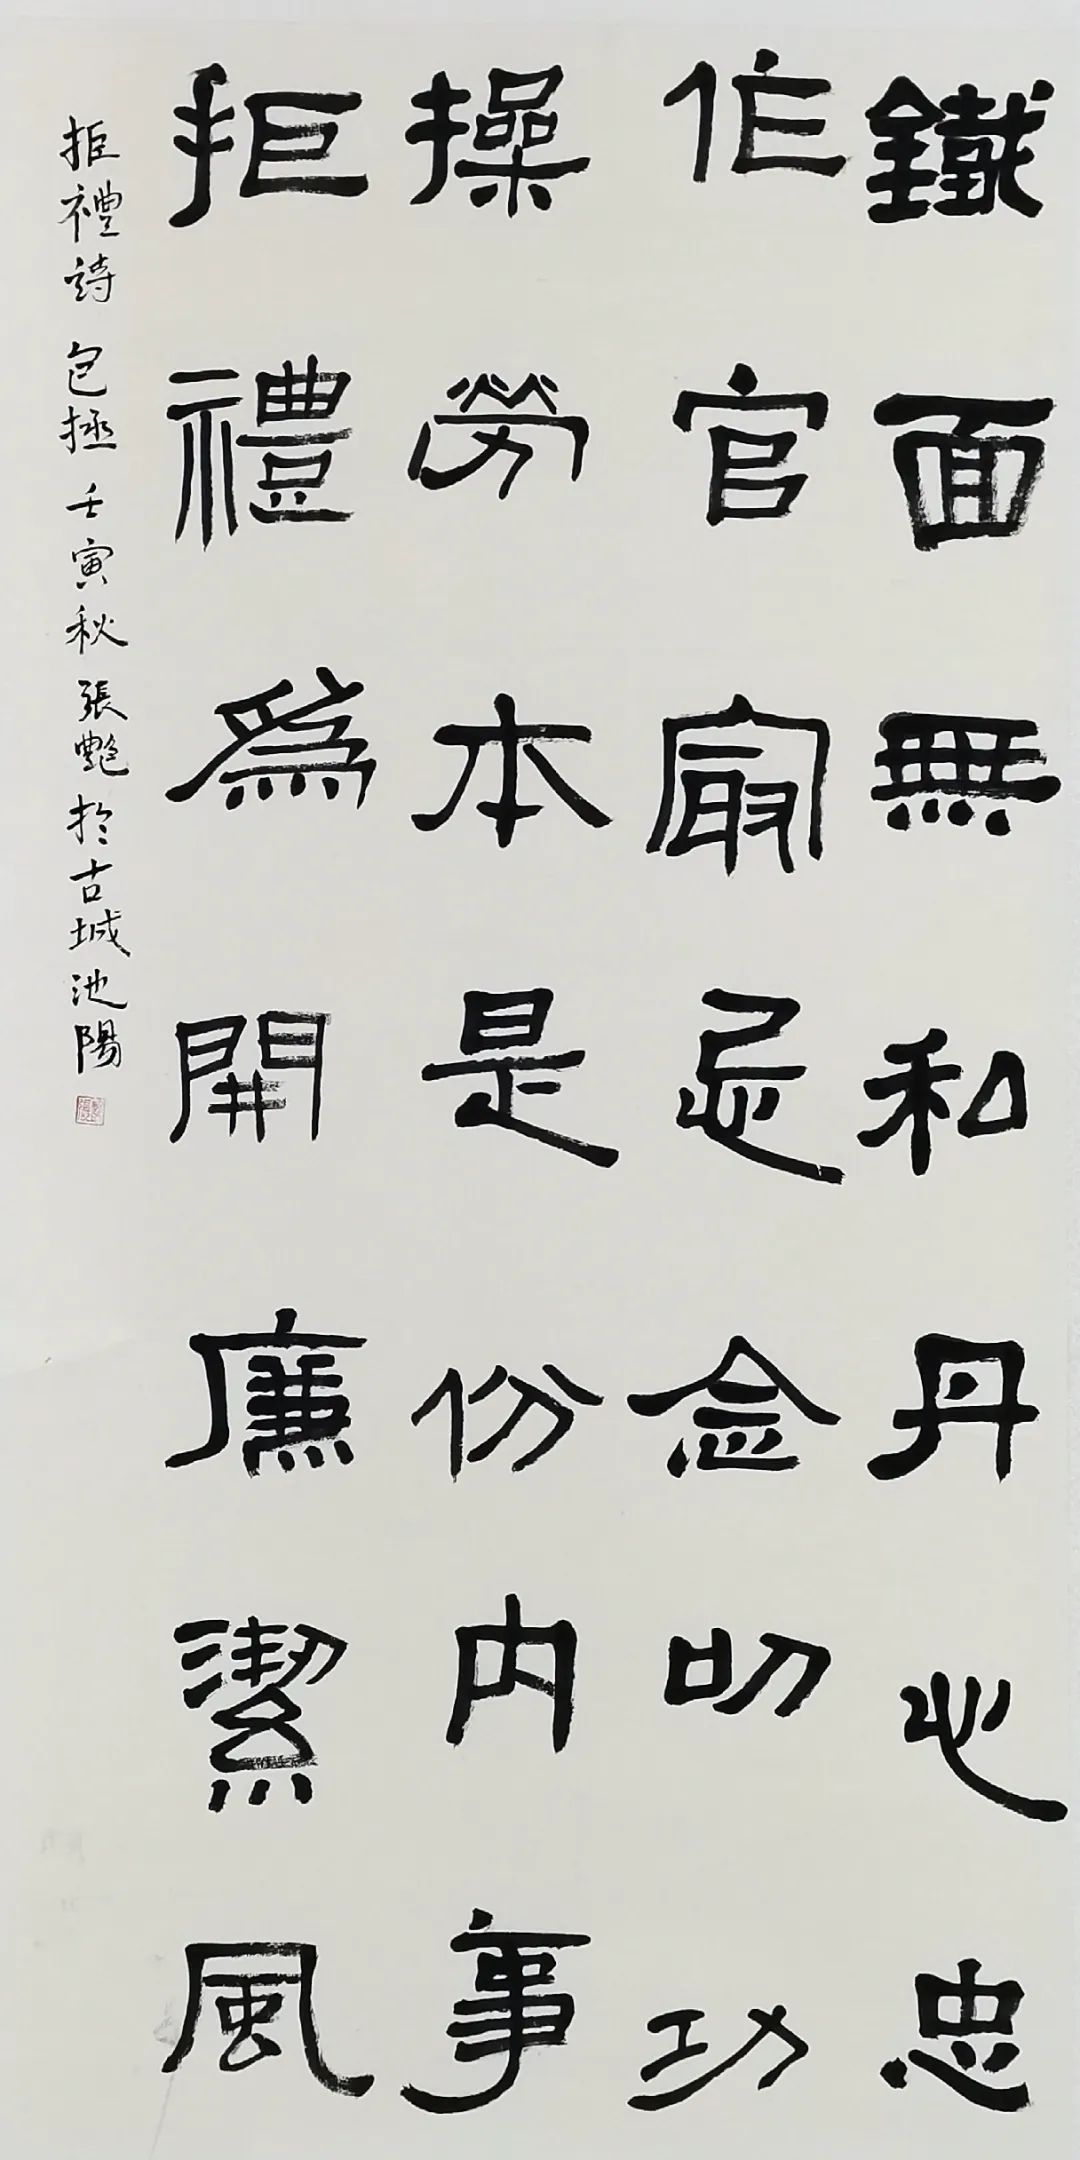 鐵面無私丹心忠
作官最忌念叨功
操勞本是份内事
拒禮為開廉潔風
拒禮詩 包拯 壬寅秋 張艷於古城池陽